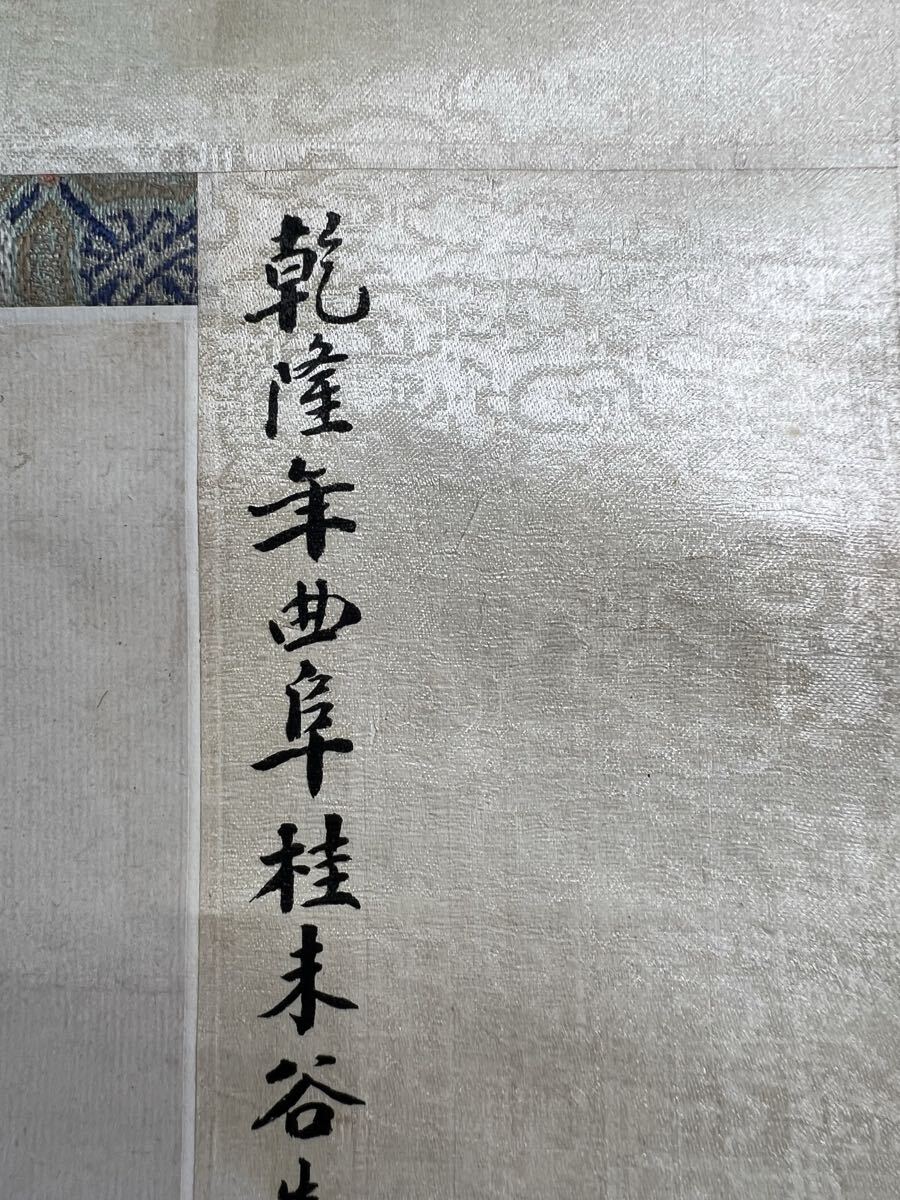 乾隆年曲阜桂未谷